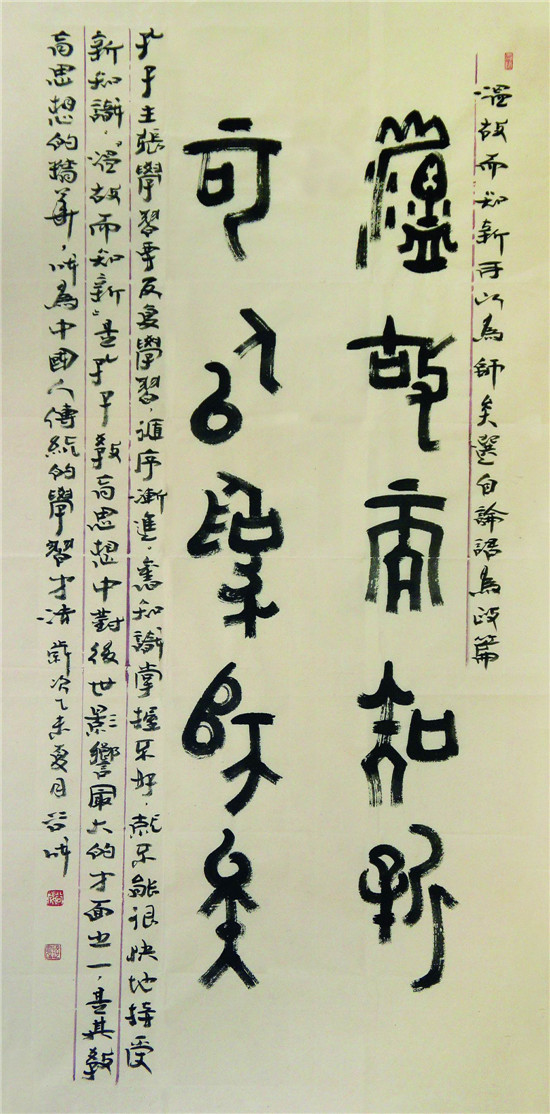 温故而知新可以為師矣選自論語為政篇
蕰故而知新
可以為師矣
孔子主張學習要反復學習，循序漸進，舊知識掌握不好，就不能很快地接受
新知識，“温故而知新”是孔子教育思想中對後世影響最大的方面之一，是其教
育思想的精華，成為中國人傳統的學習方法 歲次乙未夏月